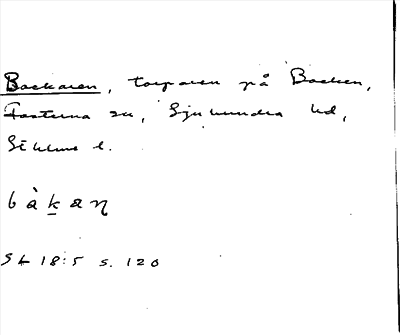 Backaren, torparen på Backen,
Fasterna sn, Sjuhundra hd,
Sthlms l.
bàkaɳ
SL 18:5 s. 120